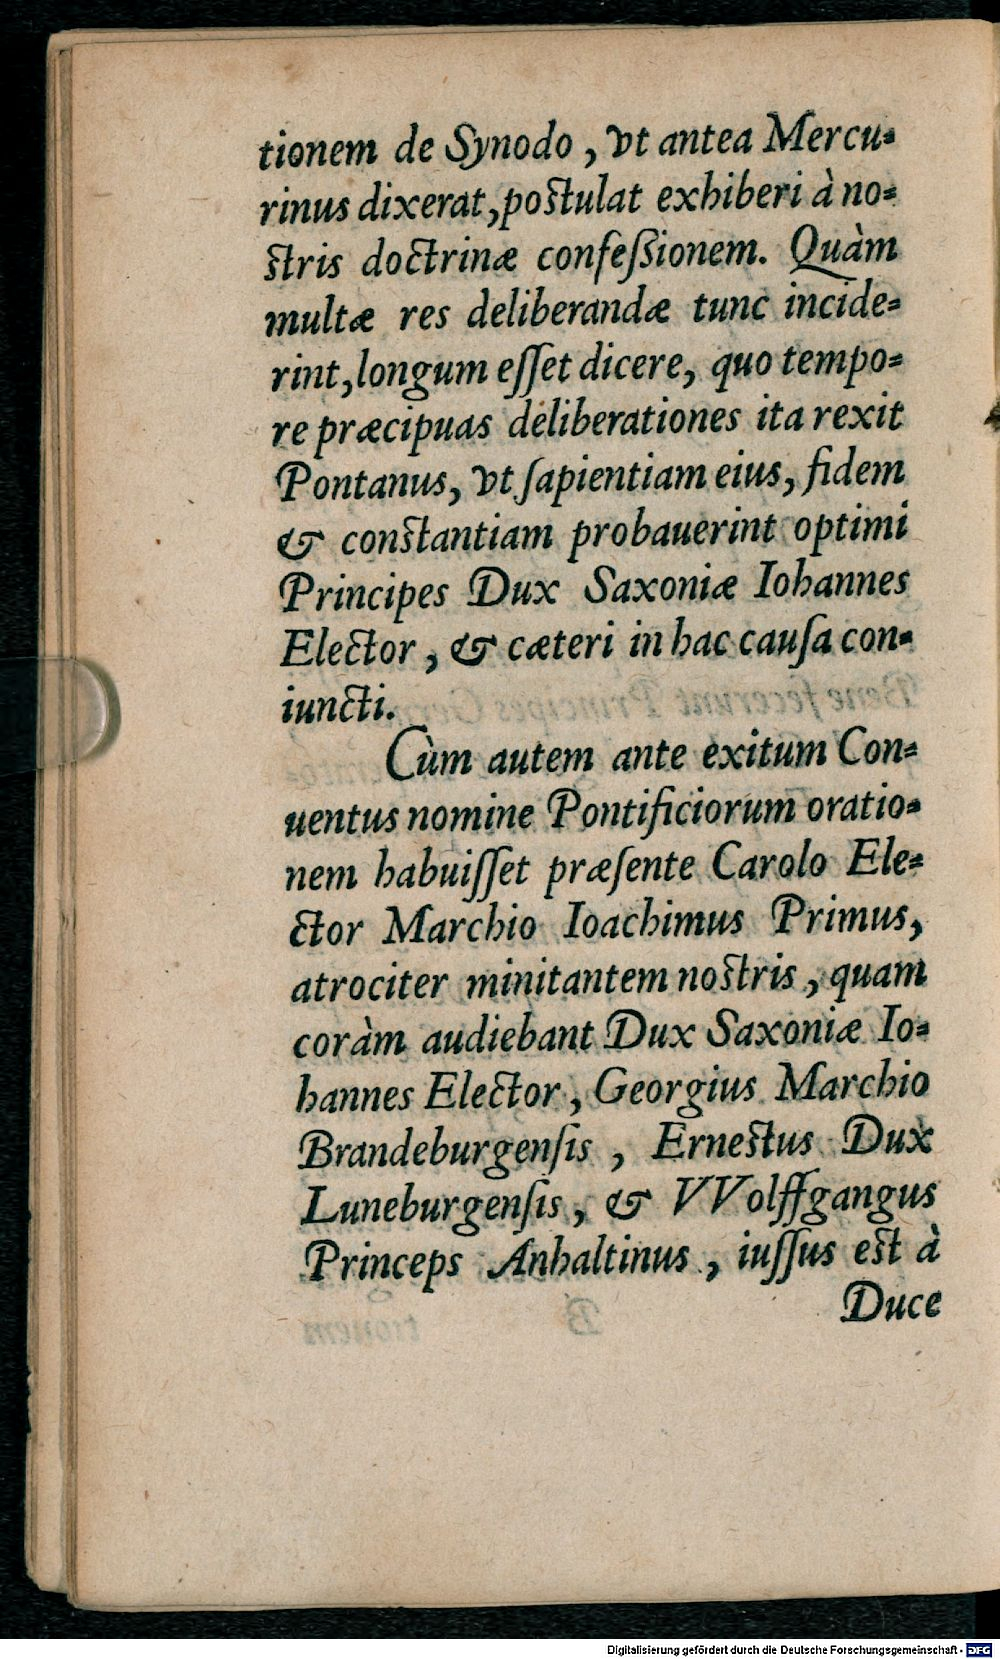 tionem de Synodo, vt antea Mercu-
rinus dixerat, postulat exhiberi à no-
stris doctrinæ confeſsionem. Quàm
multæ res deliberandæ tunc incide-
rint, longum eſſet dicere, quo tempo-
re præcipuas deliberationes ita rexit
Pontanus, vt ſapientiam eius, fidem
& constantiam probauerint optimi
Principes Dux Saxoniæ Iohannes
Elector, & cæteri in hac cauſa con-
iuncti.
Cùm autem ante exitum Con-
uentus nomine Pontificiorum oratio-
nem habuiſſet præſente Carolo Ele-
ctor Marchio Ioachimus Primus,
atrociter minitantem nostris, quam
coràm audiebant Dux Saxoniæ Io-
hannes Elector, Georgius Marchio
Brandeburgenſis, Ernestus Dux
Luneburgenſis, & VVolffgangus
Princeps Anhaltinus, iuſſus est à
Duce
Digitalisierung gefördert durch die Deutsche Forschungsgemeinschaft - DFG